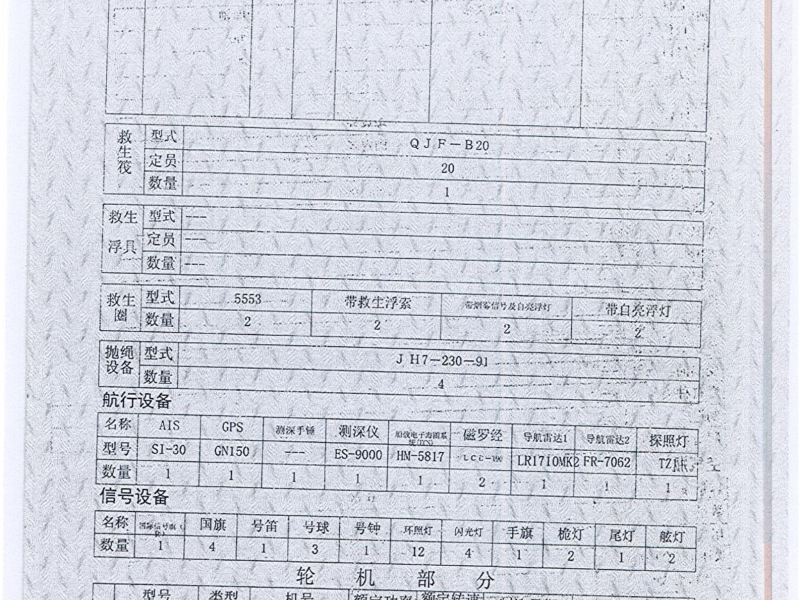 救生筏 型式 QJF-B20
定员 20
数量 1
救生浮具 型式 ---
定员 ---
数量 ---
救生圈 型式 5553 带救生浮索 带烟雾信号及自亮浮灯 带自亮浮灯
数量 2 2 2 2
抛绳设备 型式 JH7-230-91
数量 4
航行设备
名称 AIS GPS 测深手锤 测深仪 磁罗经 导航雷达1 导航雷达2 探照灯
型号 SI-30 GN150 --- ES-9000 HM-5817 LR1710MK2 FR-7062
数量 1 1 1 1 1 2 1 1 1
信号设备
名称 国旗 号笛 号球 号钟 环照灯 闪光灯 手旗 桅灯 尾灯 舷灯
数量 1 4 1 3 1 12 4 1 2 1 2
轮机部分
型号 类型 机号 额定功率 额定转速